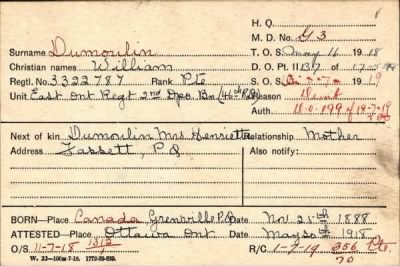 H. Q.
M. D. No. G 3
Surname Dumoulin
T. O. S. May 16 1918
Christian names William
D. O. Pt II 137 of 17-5-
Regtl. No. 3322787 Rank Pte
S. O. S. 1919
Unit East Ont Regt 2nd Dpo. Bn
Reason Demob
Auth. D.O. 199 of 18-7-19
Next of kin Dumoulin Mrs Henrietta Relationship Mother
Address Fassett, P.Q
Also notify:
BORN—Place Canada Grenville P.Q Date Nov. 25th 1888
ATTESTED—Place Ottawa Ont Date May 20th 1918
O/S 11-7-18 1313 R/C 1-7-19 356
70
W. 22—100M-7-18. 1772-39-839.